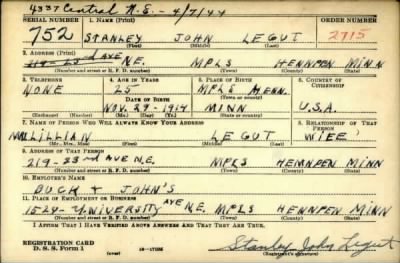 4337 Central N.E. - 4/7/44
SERIAL NUMBER 1. NAME (Print) ORDER NUMBER
752 STANLEY JOHN LEGUT 2715
(First) (Middle) (Last)
2. ADDRESS (Print)
219-23rd AVE N.E. MPLS HENNPEN MINN
(Number and street or R. F. D. number) (Town) (County) (State)
3. TELEPHONE 4. AGE IN YEARS 5. PLACE OF BIRTH 6. COUNTRY OF CITIZENSHIP
NONE 25 MPLS HENN.
DATE OF BIRTH (Town) (County)
NOV. 29-1914 MINN U.S.A.
(Mo.) (Day) (Yr.) (State or country)
7. NAME OF PERSON WHO WILL ALWAYS KNOW YOUR ADDRESS 8. RELATIONSHIP OF THAT PERSON
LILLIAN LEGUT WIFE
(Mr., Mrs., Miss) (First) (Middle) (Last)
9. ADDRESS OF THAT PERSON
219-23rd AVE N.E. MPLS HEMNPEN MINN
(Number and street or R. F. D. number) (Town) (County) (State)
10. EMPLOYER'S NAME
BUCK & JOHN'S
11. PLACE OF EMPLOYMENT OR BUSINESS
1524-UNIVERSITY AVE N.E. MPLS HENNPEN MINN
(Number and street or R. F. D. number) (Town) (County) (State)
I AFFIRM THAT I HAVE VERIFIED ABOVE ANSWERS AND THAT THEY ARE TRUE.
REGISTRATION CARD
D. S. S. Form 1 (over) Stanley John Legut
(Registrant's signature)